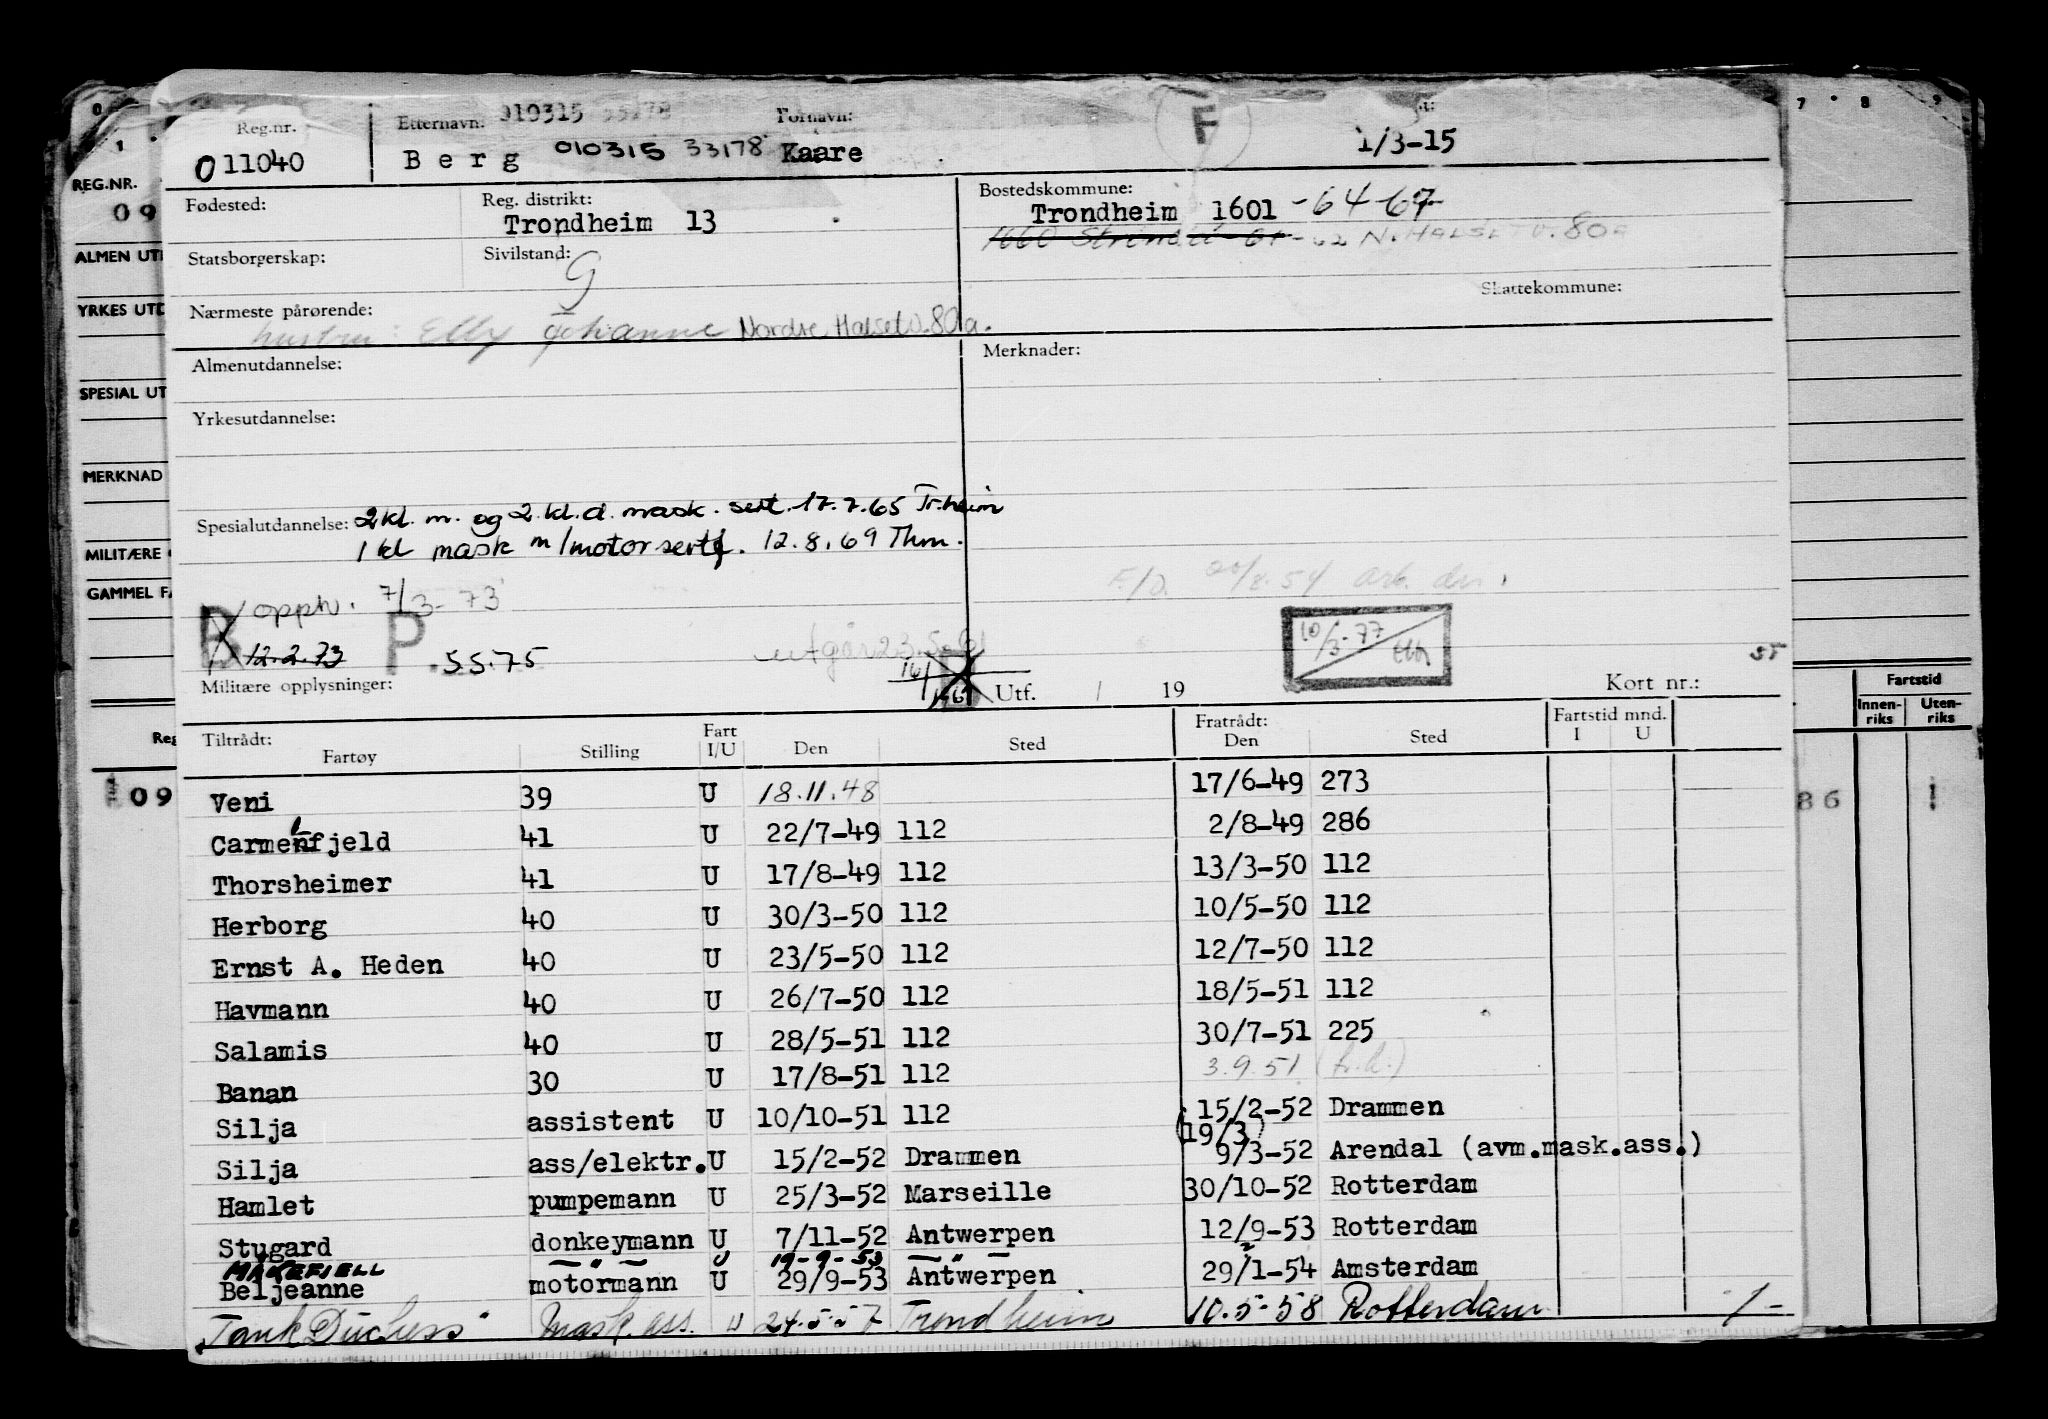 0 1 7 8 9
Reg.nr. Etternavn: 010315 33178 Fornavn: F
011040 Berg 010315 33178 Kaare 1/3-15
REG.NR.
09
Fødested: Reg. distrikt: Bostedskommune:
Trondheim 13 Trondheim 1601 -64-67
1660 Strinda -62 N. HALSETV. 80a
ALMEN UT
Statsborgerskap: Sivilstand: G
Skattekommune:
YRKES UTD
Nærmeste pårørende:
hustru: Elly Johanne Nordre Halsetv. 80a.
Almenutdannelse: Merknader:
SPESIAL UT
Yrkesutdannelse:
MERKNAD
Spesialutdannelse: 2 kl. m. og 2. kl. d. mask. sert. 17.7.65 Tr.heim
1 kl mask m/motorsertf. 12.8.69 Thm.
MILITÆRE
GAMMEL FA
F/D. 20/8.54 arb. du.
opph. 7/3-73
B 12.2.73 P. 5.5.75 utgår 23.5.61
10/3-77
Militære opplysninger: Utf. / 19 Kort nr.:
Fartstid
Innen-riks Uten-riks
Tiltrådt: Fratrådt: Fartstid mnd.
Fartøy Stilling Fart I/U Den Sted Den Sted I U
Reg
09 86 1
Veni 39 U 18.11.48 17/6-49 273
Carmelfjeld 41 U 22/7-49 112 2/8-49 286
Thorsheimer 41 U 17/8-49 112 13/3-50 112
Herborg 40 U 30/3-50 112 10/5-50 112
Ernst A. Heden 40 U 23/5-50 112 12/7-50 112
Havmann 40 U 26/7-50 112 18/5-51 112
Salamis 40 U 28/5-51 112 30/7-51 225
Banan 30 U 17/8-51 112 3.9.51 (h.k.)
Silja assistent U 10/10-51 112 15/2-52 Drammen
(19/3)
Silja ass/elektr. U 15/2-52 Drammen 9/3-52 Arendal (avm.mask.ass.)
Hamlet pumpemann U 25/3-52 Marseille 30/10-52 Rotterdam
Stugard donkeymann U 7/11-52 Antwerpen 12/9-53 Rotterdam
MAKEFJELL — " — U 19-9-53 — " —
Beljeanne motormann U 29/9-53 Antwerpen 29/1-54 Amsterdam
Tank Duchess Mask. ass. U 24.5.57 Trondheim 10.5-58 Rotterdam -1-